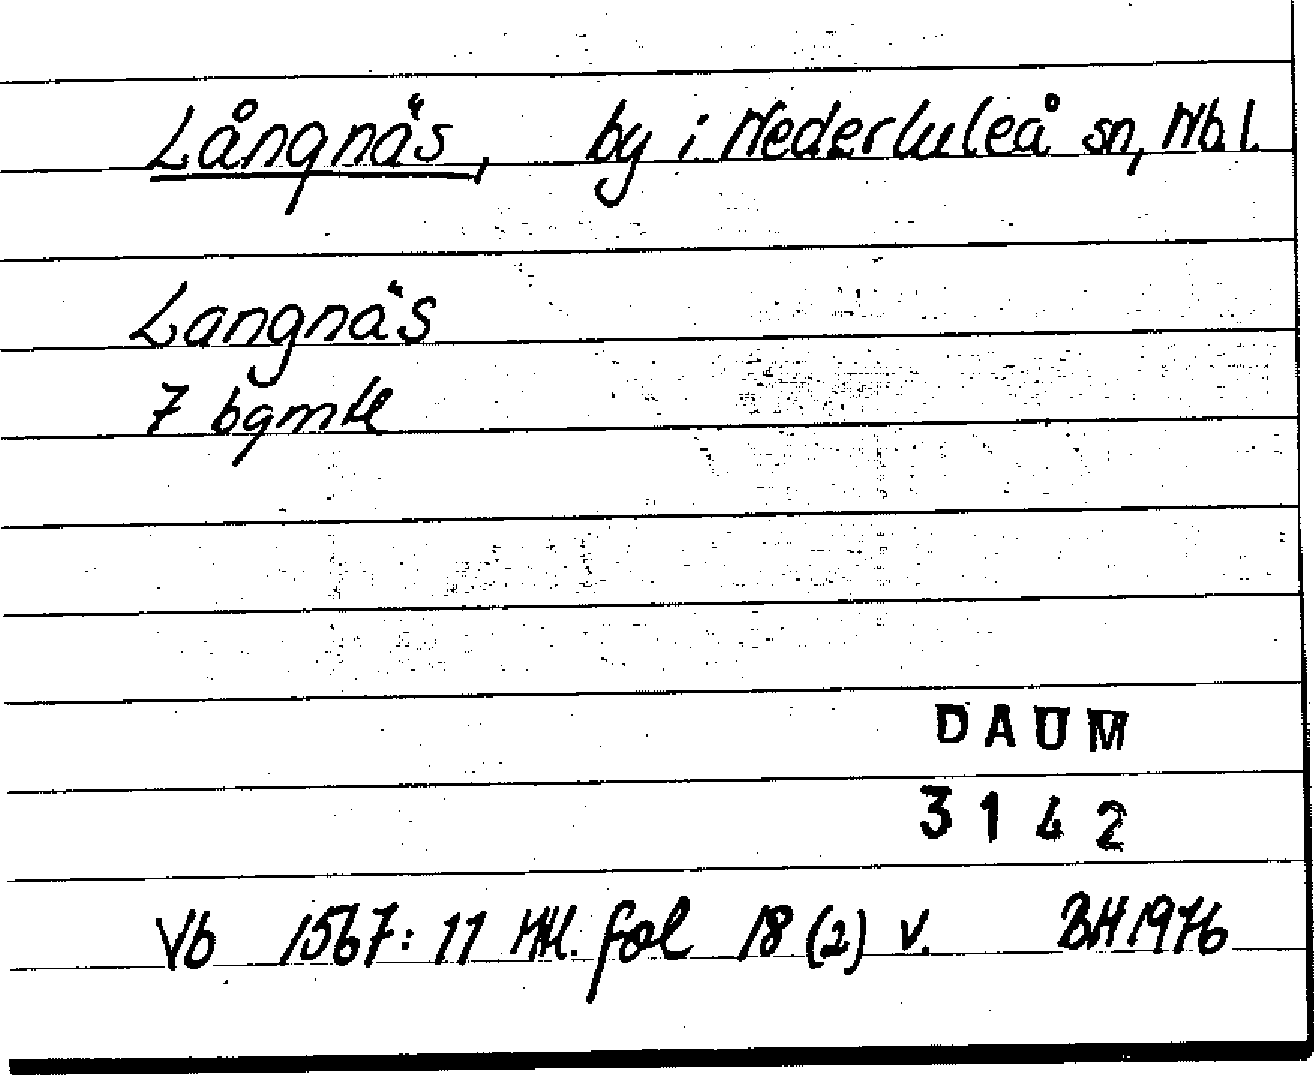 Långnäs, by i Nederluleå sn, Nb.l.
Langnäs
7 bgmtl
DAUM
3142
Vb 1567: 11 Mtl. fol 18 (2) v. BH 1976